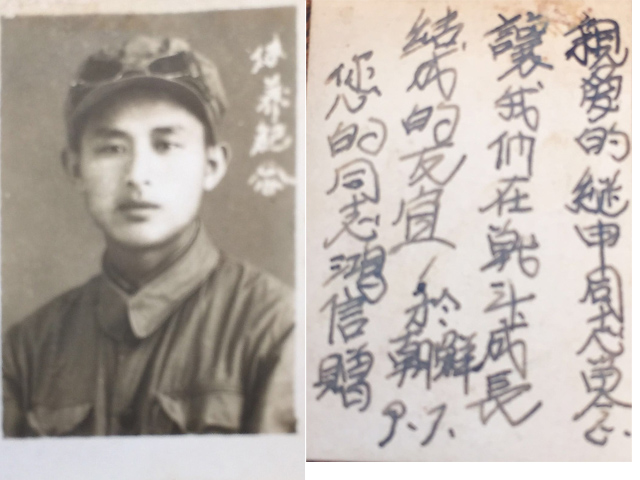 親愛的継申同志留念
讓我們在戰斗成長
结成的友宜
於朝鮮
9.7.
您的同志鴻信贈